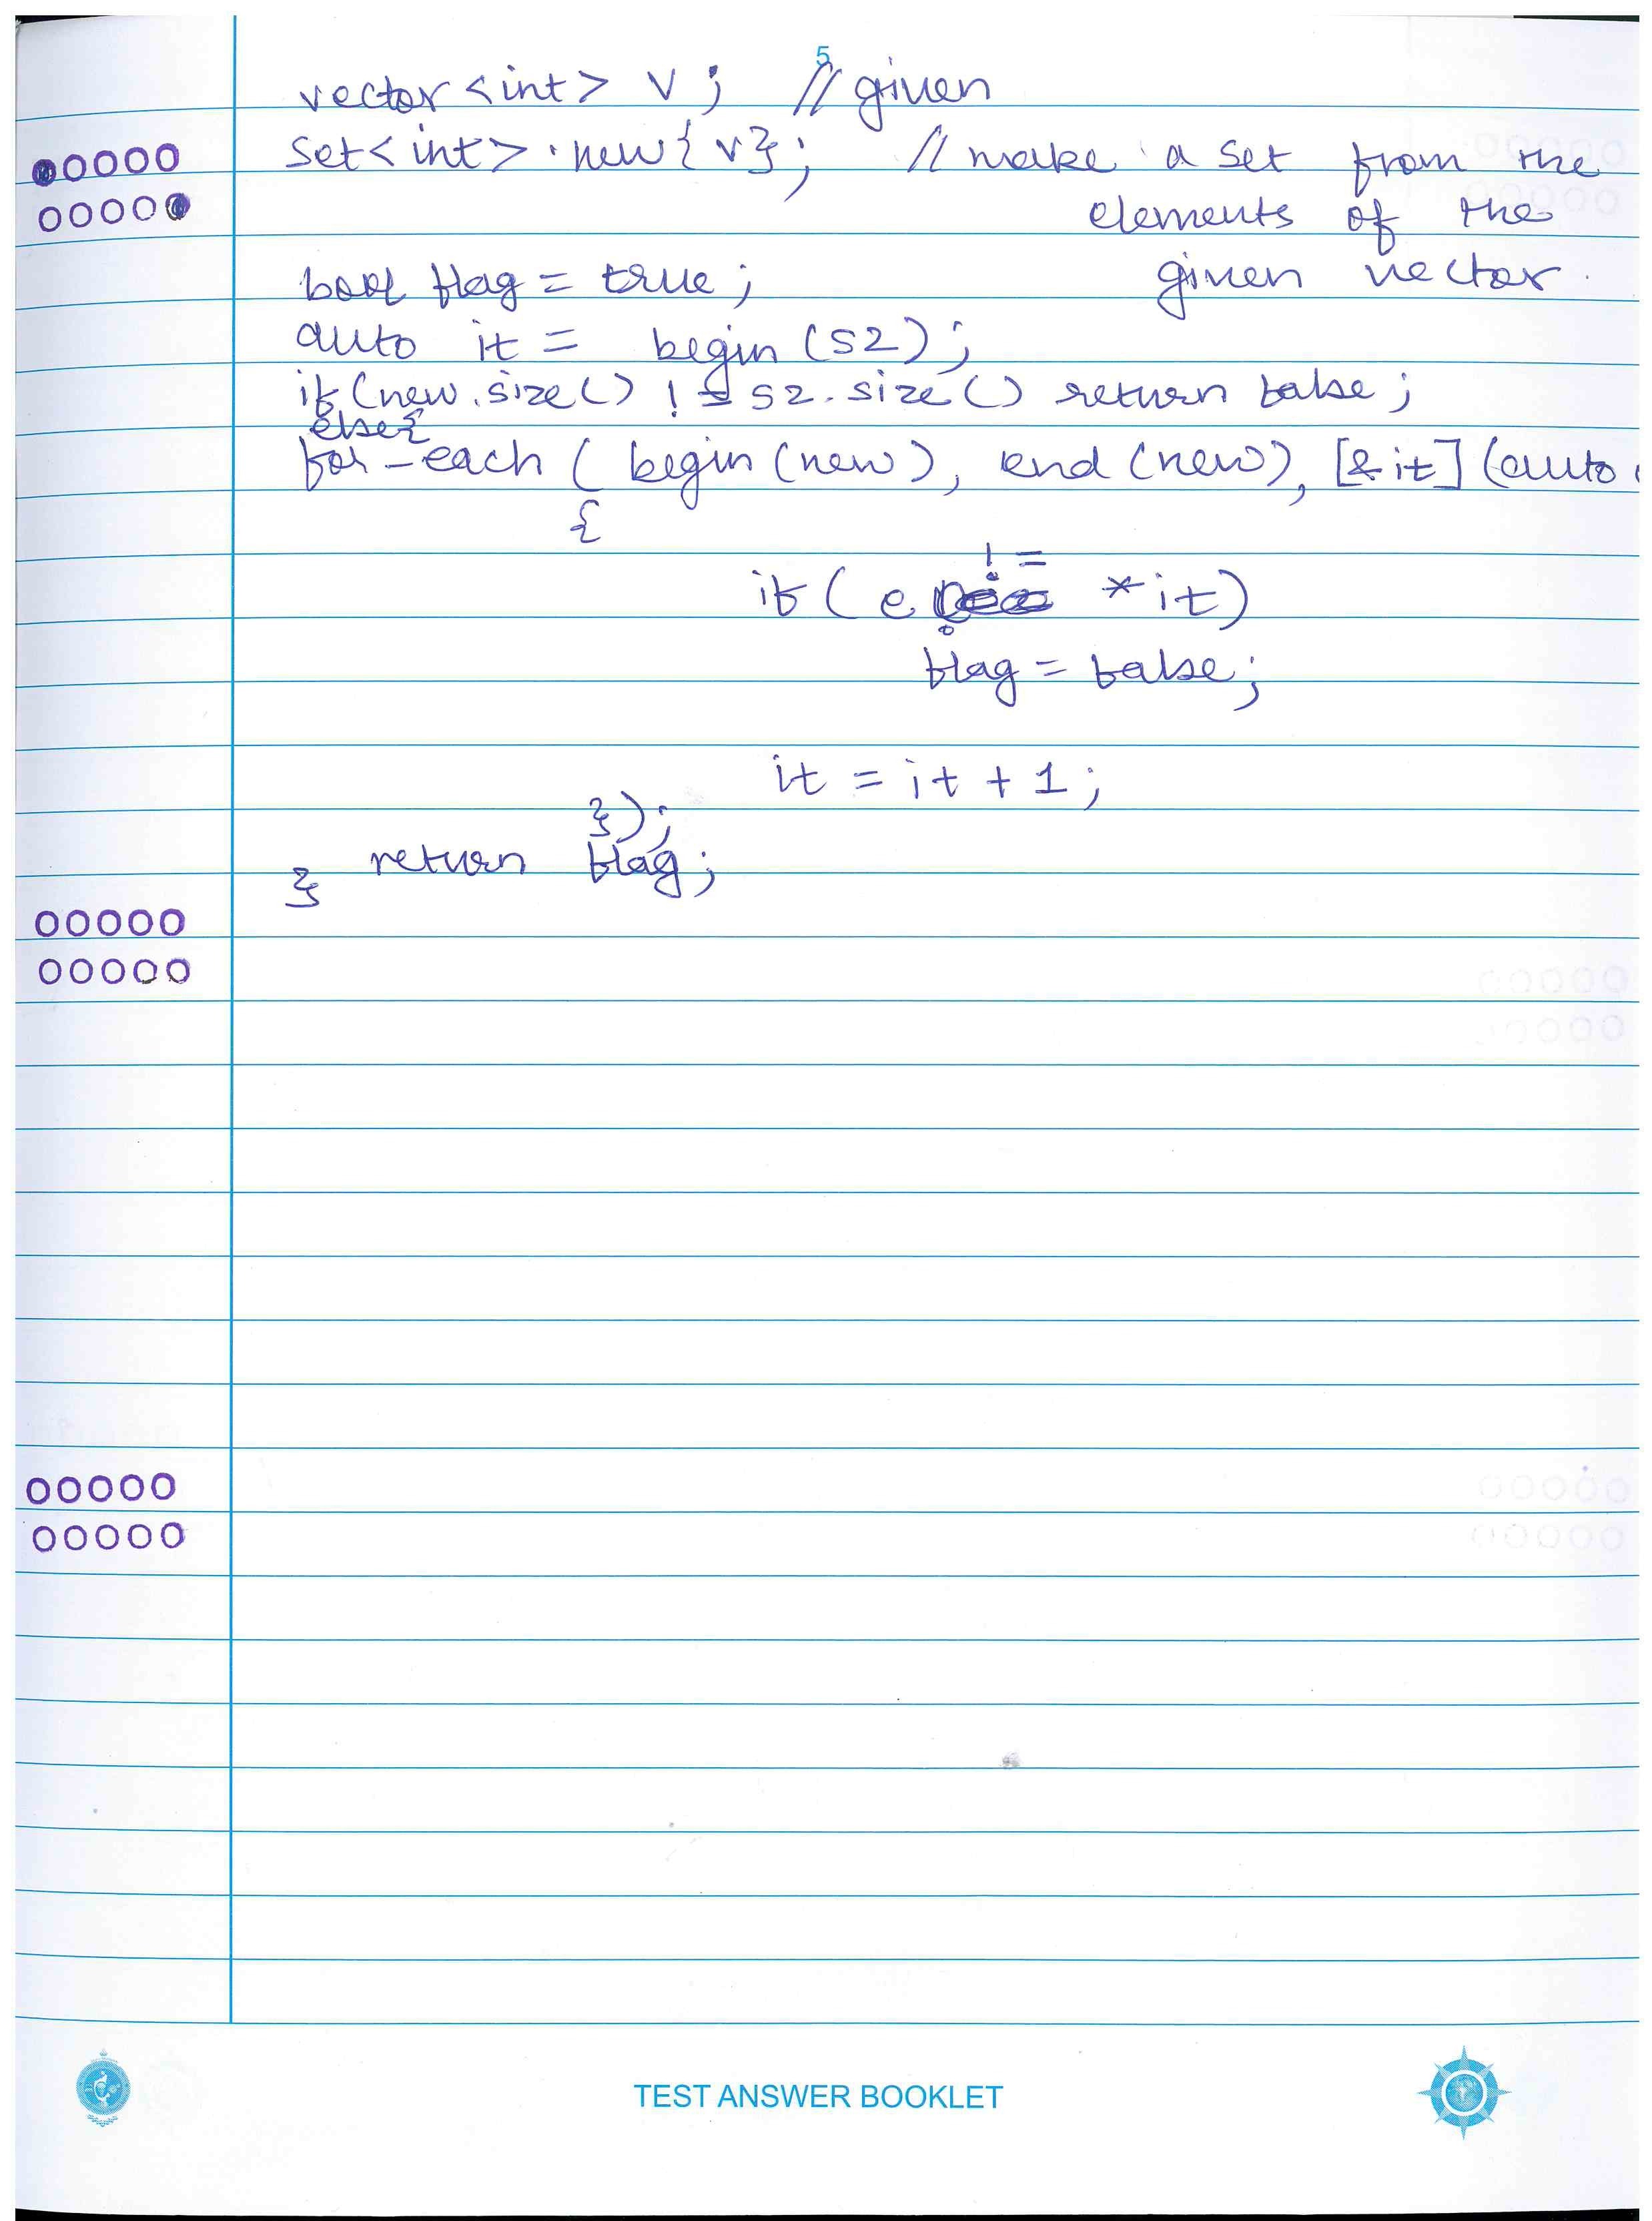 5
vector<int> v; // given
set<int> new{v}; // make a set from the
elements of the
given vector.
bool flag = true;
auto it = begin(s2);
if(new.size() != s2.size() return false;
else{
for_each( begin(new), end(new), [&it](auto
{
if( e != *it)
flag = false;
it = it + 1;
});
return flag;
}
TEST ANSWER BOOKLET